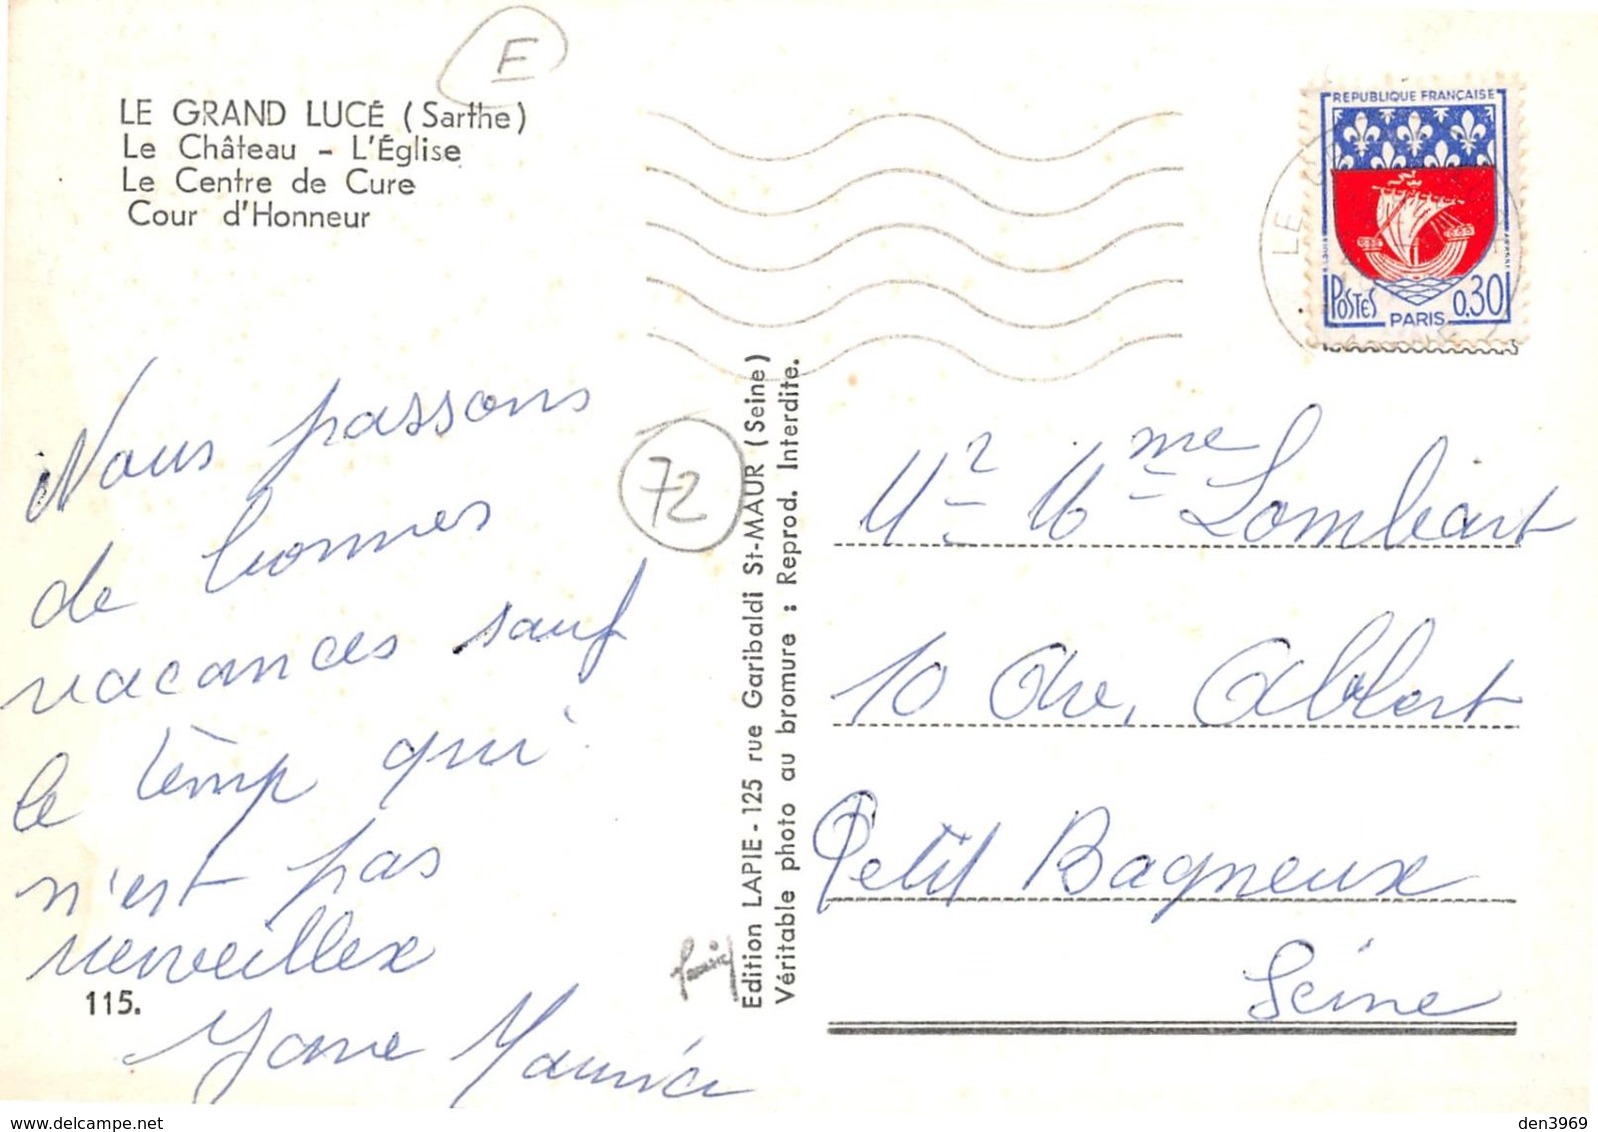 F
LE GRAND LUCÉ (Sarthe)
Le Château - L'Église
Le Centre de Cure
Cour d'Honneur
REPUBLIQUE FRANÇAISE
POSTES 0.30
PARIS
LE
Nous passons
de bonnes
vacances sauf
le temp qui
n'est pas
merveillex
Maurice
115.
72
Edition LAPIE - 125 rue Garibaldi St-MAUR (Seine)
Véritable photo au bromure : Reprod. Interdite.
Mr Mme Lombart
10 Ave, Albert
Petit Bagneux
Seine
den3969